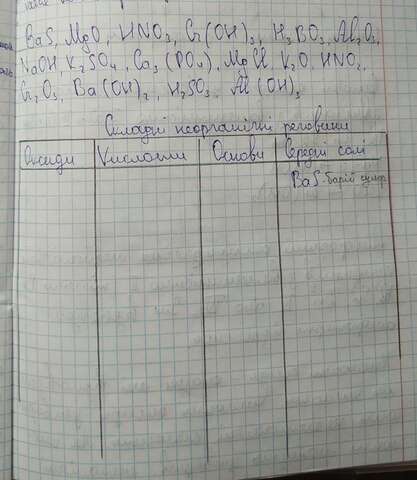 BaS, MgO, HNO₃, Cr(OH)₃, H₃BO₃, Al₂O₃,
NaOH, K₂SO₄, Ca₃(PO₄)₂ MgCl K₂O, HNO₂,
Cr₂O₃, Ba(OH)₂, H₂SO₃, Al(OH)₃
Складні неорганічні речовини
Оксиди Кислоти Основи Середні солі
BaS-барій сульф